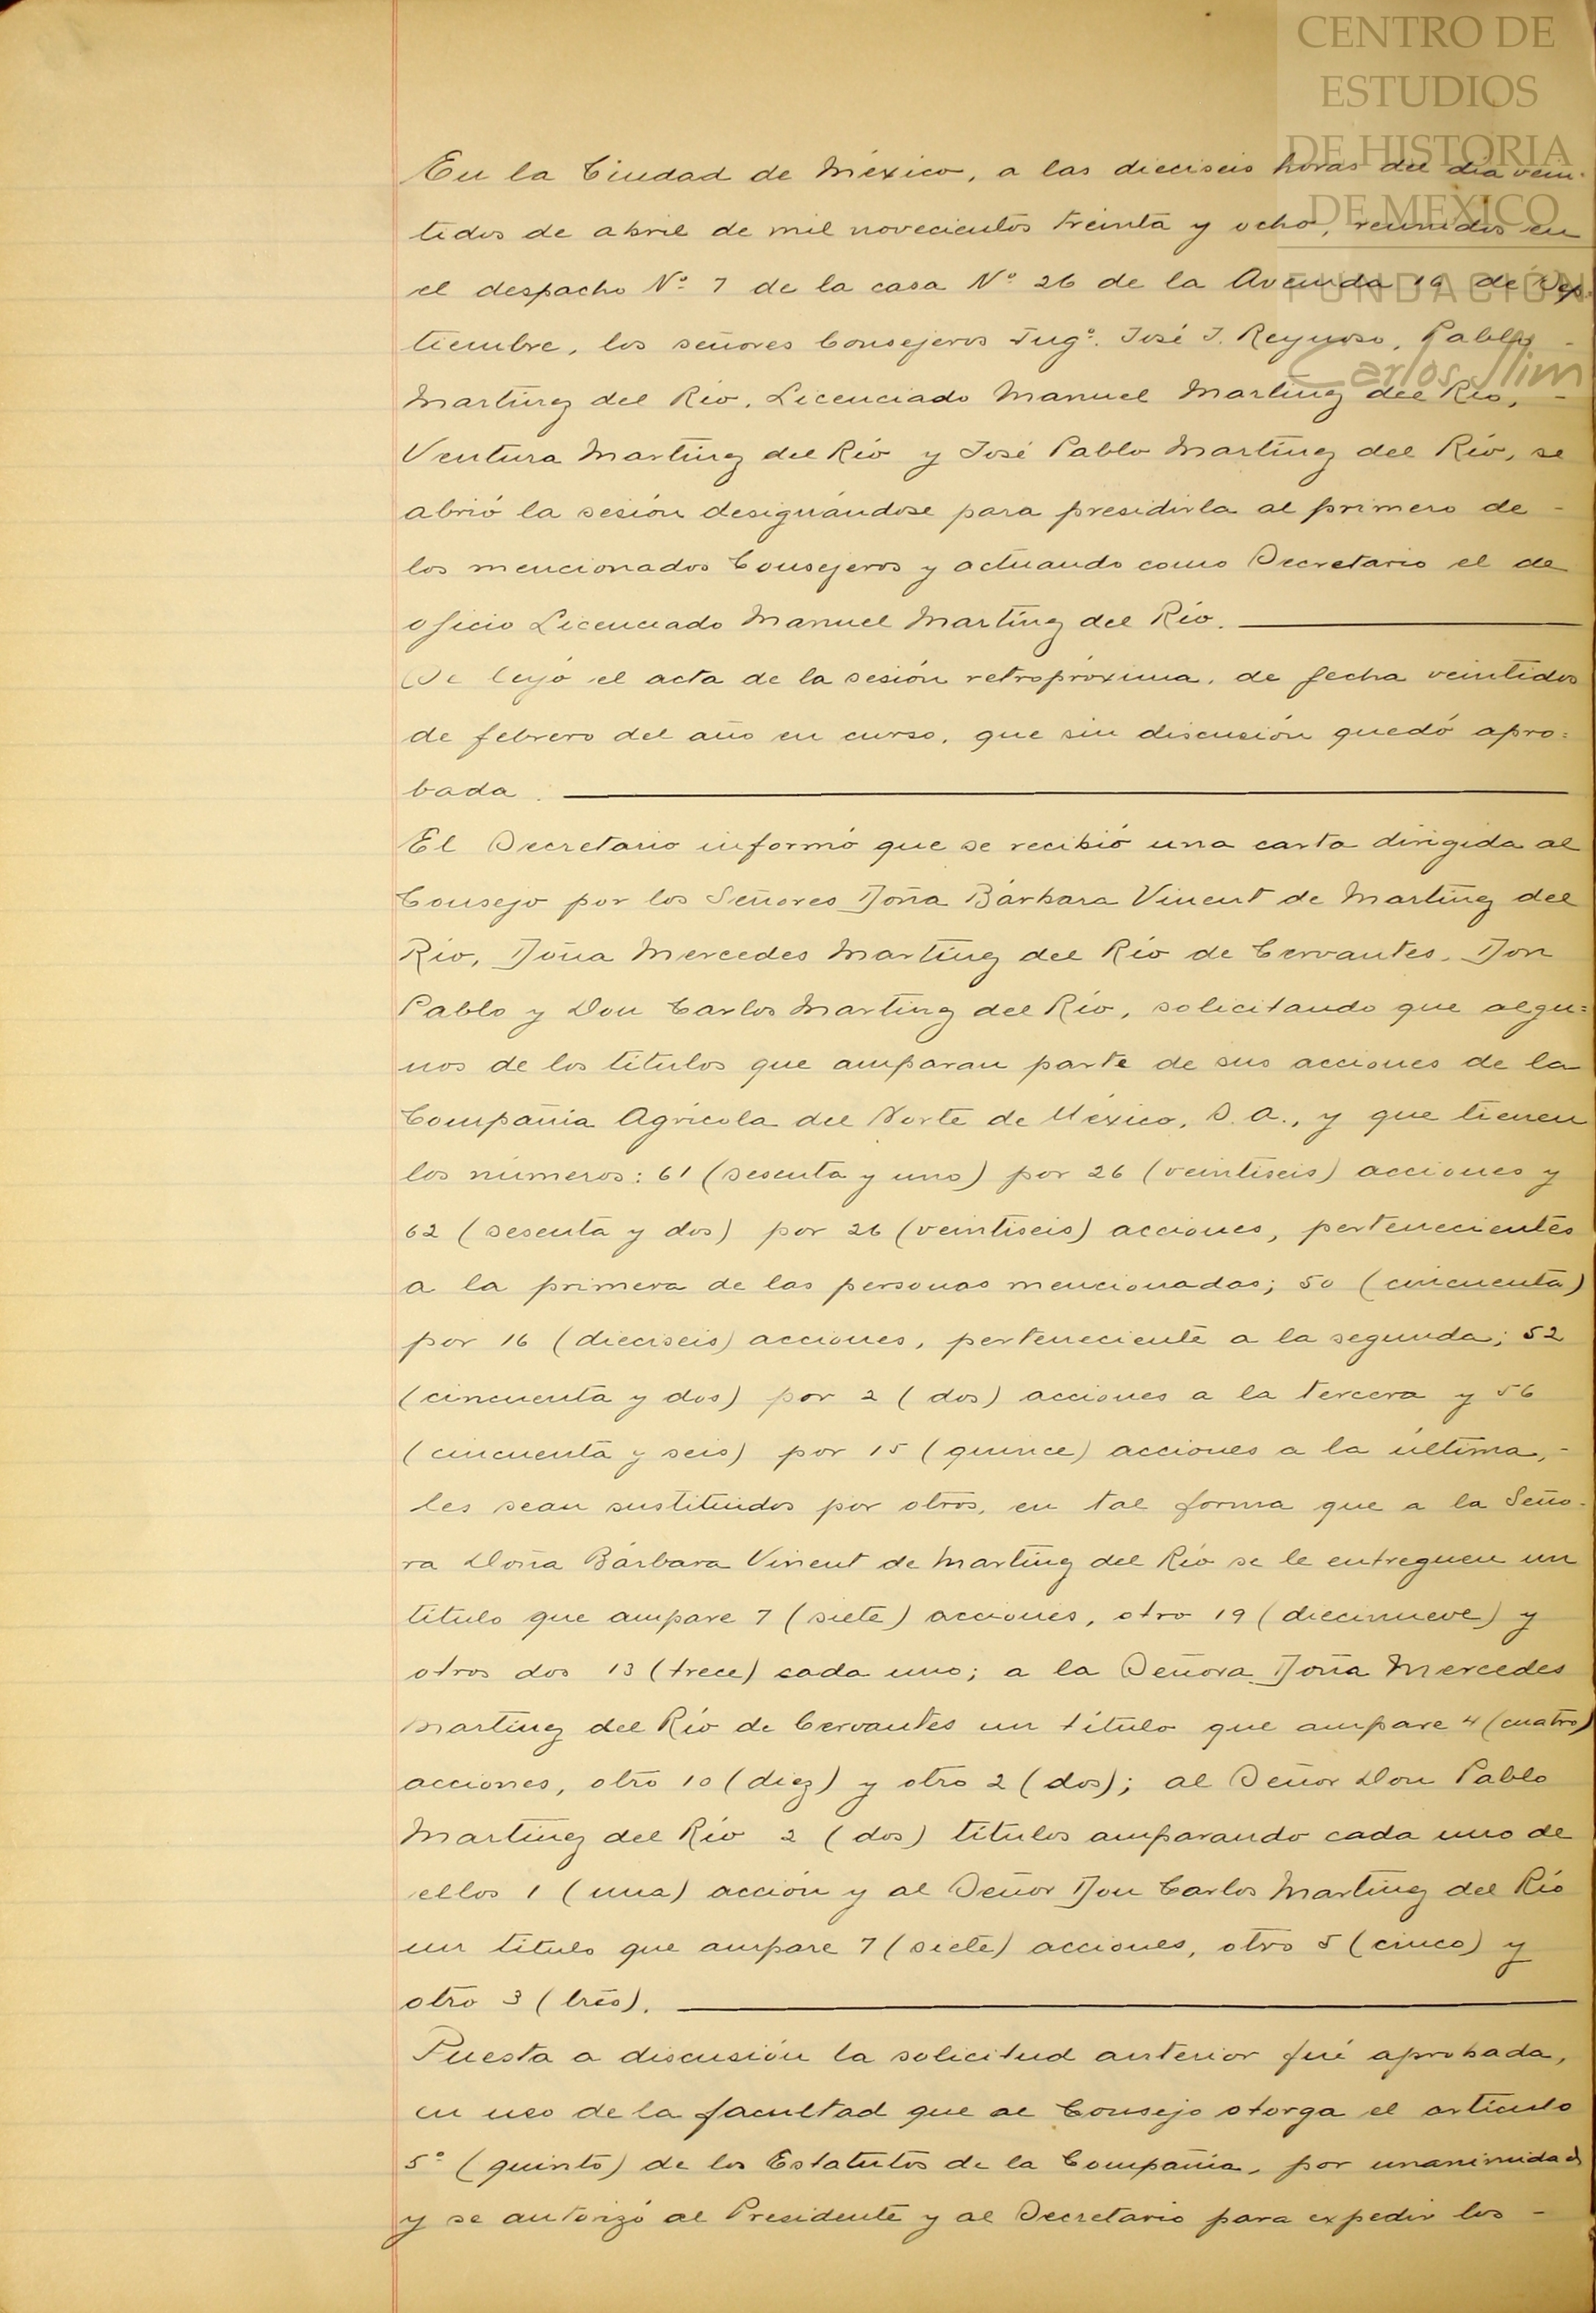 CENTRO DE
ESTUDIOS
DE HISTORIA
DE MEXICO
FUNDACIÓN
Carlos Slim
En la Ciudad de México, a las dieciseis horas del dia vein-
tidos de abril de mil novecientos treinta y ocho, reunidos en
el despacho Nº 7 de la casa Nº 26 de la Avenida 16 de Sep-
tiembre, los señores Consejeros Ingº. José J. Reynoso, Pablo -
Martínez del Río, Licenciado Manuel Martínez del Río, -
Ventura Martínez del Río y José Pablo Martínez del Río, se
abrió la sesión designándose para presidirla al primero de -
los mencionados Consejeros y actuando como Secretario el de
oficio Licenciado Manuel Martínez del Río.
Se leyó el acta de la sesión retropróxima, de fecha veintidos
de febrero del año en curso, que sin discusión quedó apro=
bada.
El Secretario informó que se recibió una carta dirigida al
Consejo por los Señores Doña Bárbara Vinent de Martínez del
Río, Doña Mercedes Martínez del Río de Cervantes, Don
Pablo y Don Carlos Martínez del Río, solicitando que algu=
nos de los títulos que amparan parte de sus acciones de la
Compañía Agrícola del Norte de México, S. A., y que tienen
los números: 61 (sesenta y uno) por 26 (veintiseis) acciones y
62 (sesenta y dos) por 26 (veintiseis) acciones, pertenecientes
a la primera de las personas mencionadas; 50 (cincuenta)
por 16 (dieciseis) acciones, perteneciente a la segunda; 52
(cincuenta y dos) por 2 (dos) acciones a la tercera y 56
(cincuenta y seis) por 15 (quince) acciones a la última, -
les sean sustituidos por otros, en tal forma que a la Seño-
ra Doña Bárbara Vinent de Martínez del Río se le entreguen un
título que ampare 7 (siete) acciones, otro 19 (diecinueve) y
otros dos 13 (trece) cada uno; a la Señora Doña Mercedes
Martínez del Río de Cervantes un título que ampare 4 (cuatro)
acciones, otro 10 (diez) y otro 2 (dos); al Señor Don Pablo
Martínez del Río 2 (dos) títulos amparando cada uno de
ellos 1 (una) acción y al Señor Don Carlos Martínez del Río
un título que ampare 7 (siete) acciones, otro 5 (cinco) y
otro 3 (tres).
Puesta a discusión la solicitud anterior fué aprobada,
en uso de la facultad que al Consejo otorga el artículo
5º (quinto) de los Estatutos de la Compañía, por unanimidad
y se autorizó al Presidente y al Secretario para expedir los -